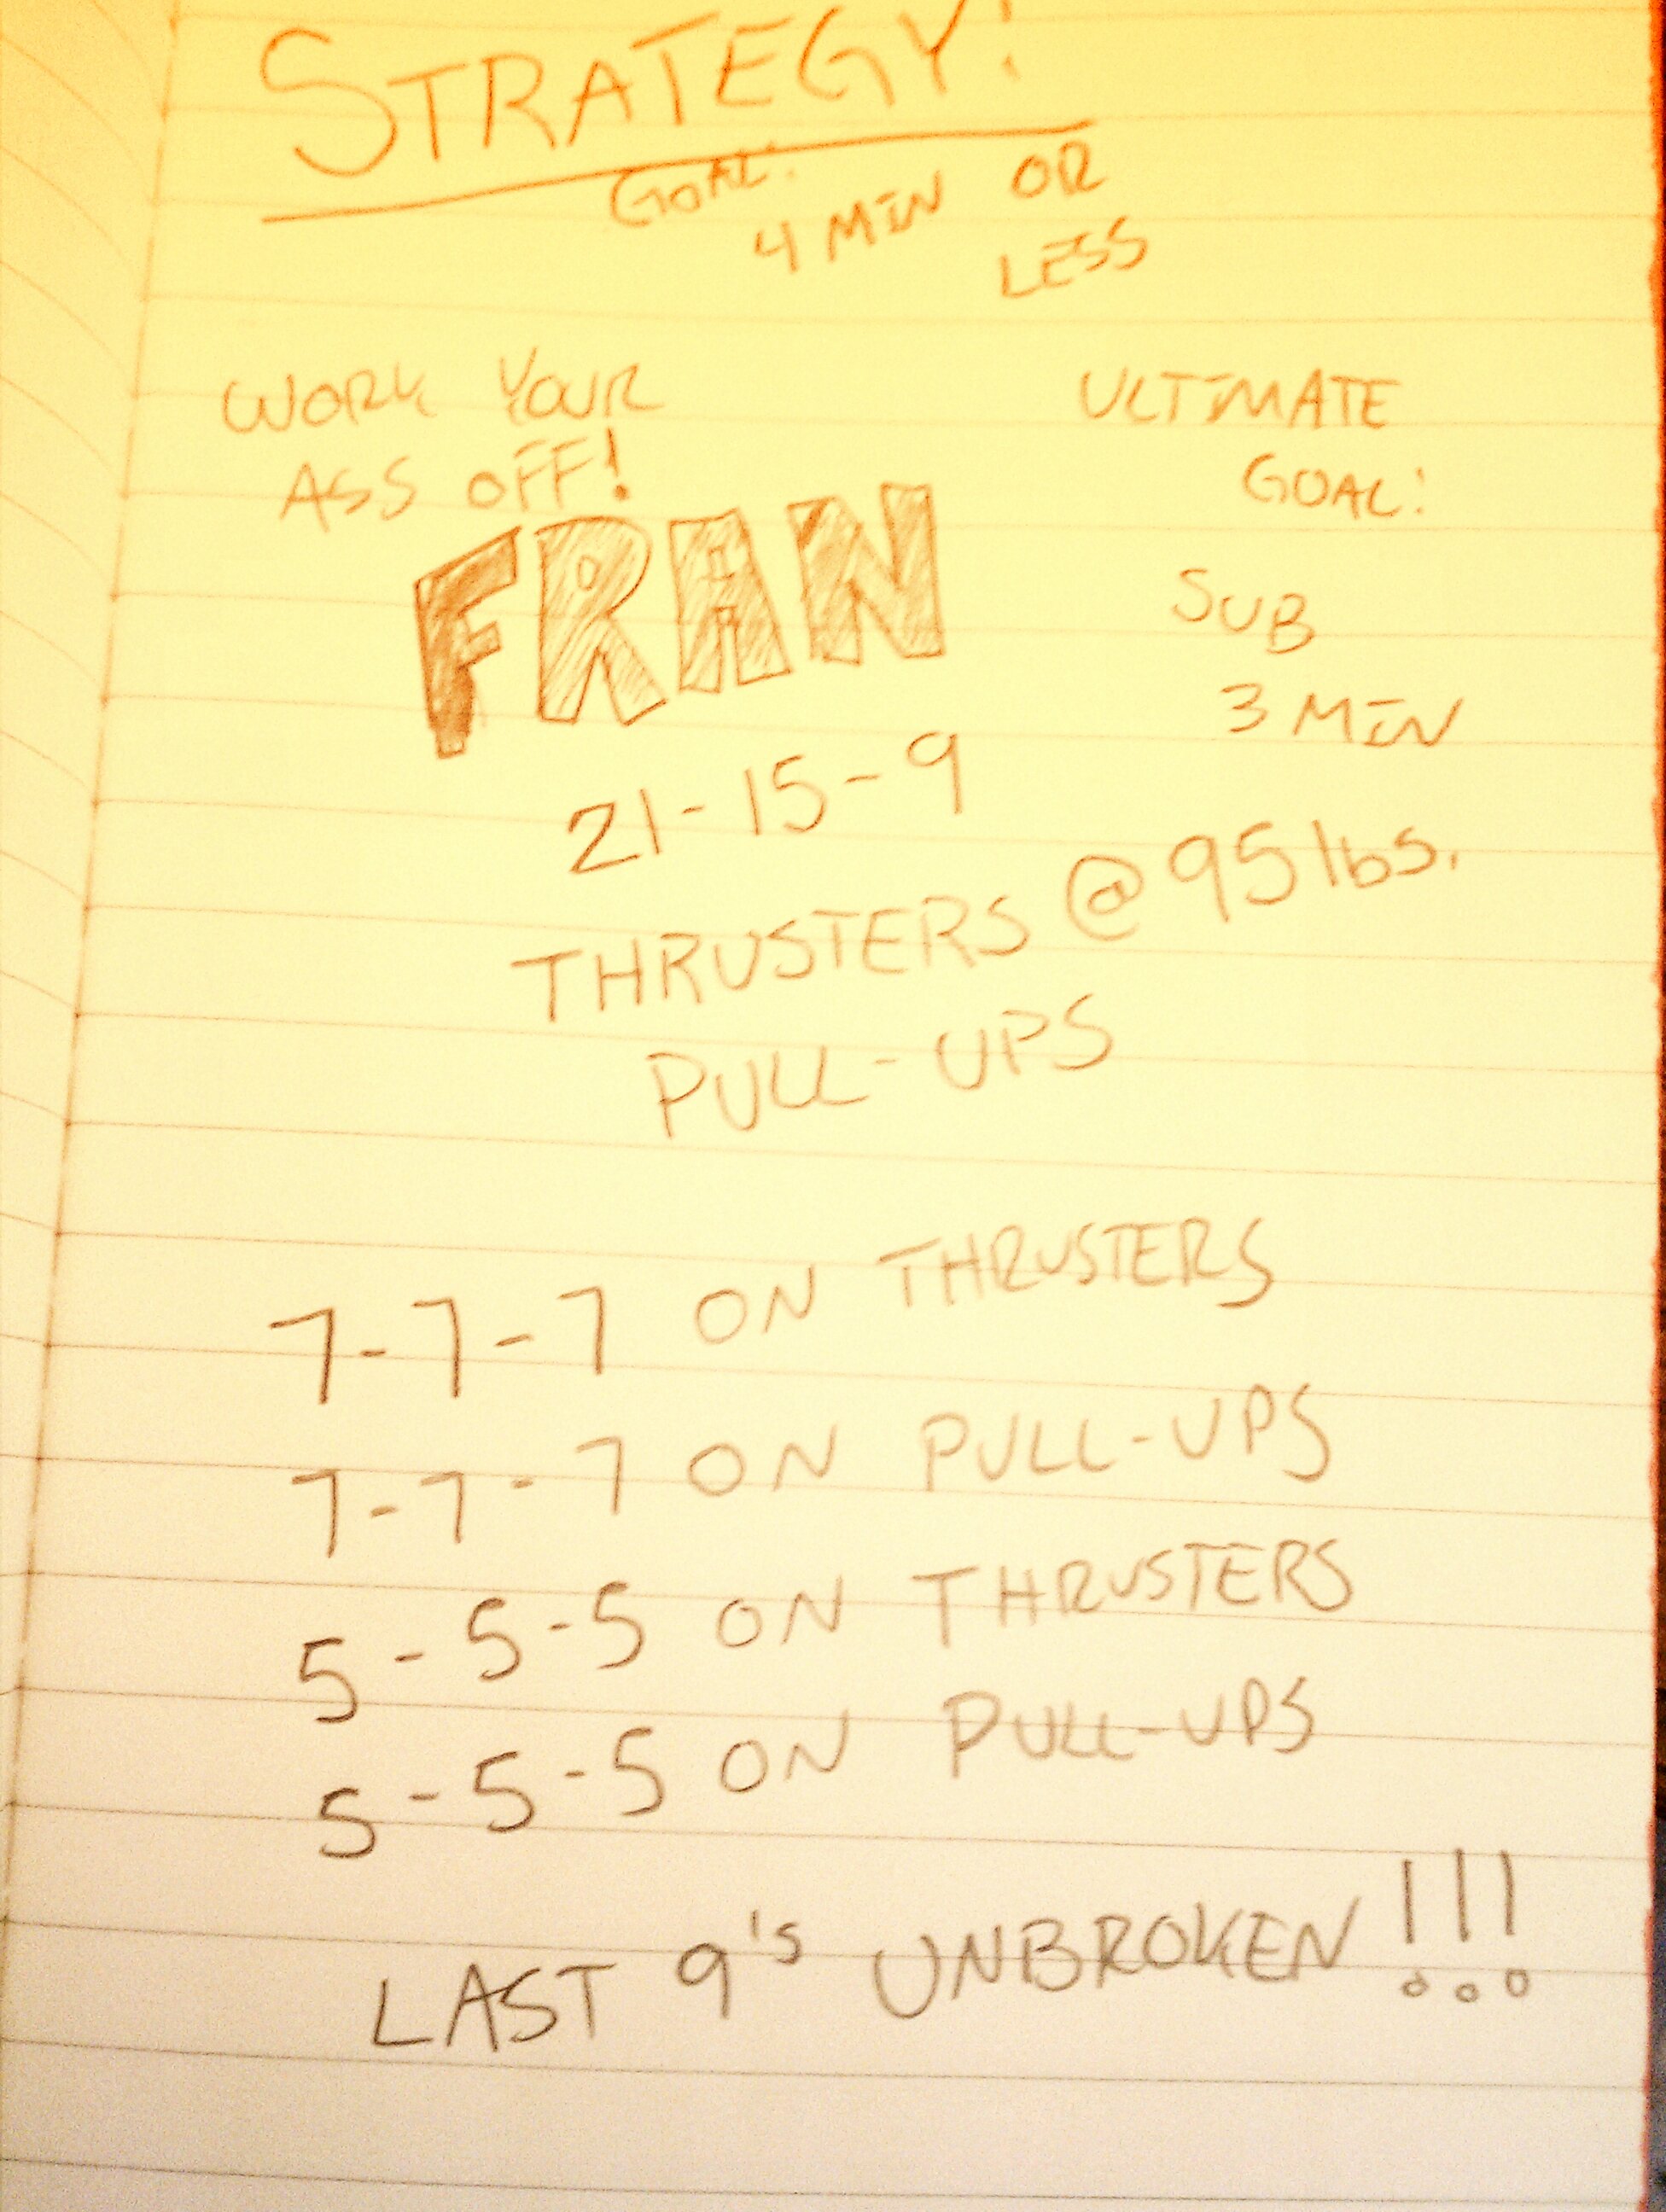 STRATEGY!
GOAL:
4 MIN OR
LESS
WORK YOUR
ASS OFF!
ULTIMATE
GOAL:
SUB
3 MIN
FRAN
21-15-9
THRUSTERS @ 95 lbs.
PULL-UPS
7-7-7 ON THRUSTERS
7-7-7 ON PULL-UPS
5-5-5 ON THRUSTERS
5-5-5 ON PULL-UPS
LAST 9's UNBROKEN!!!